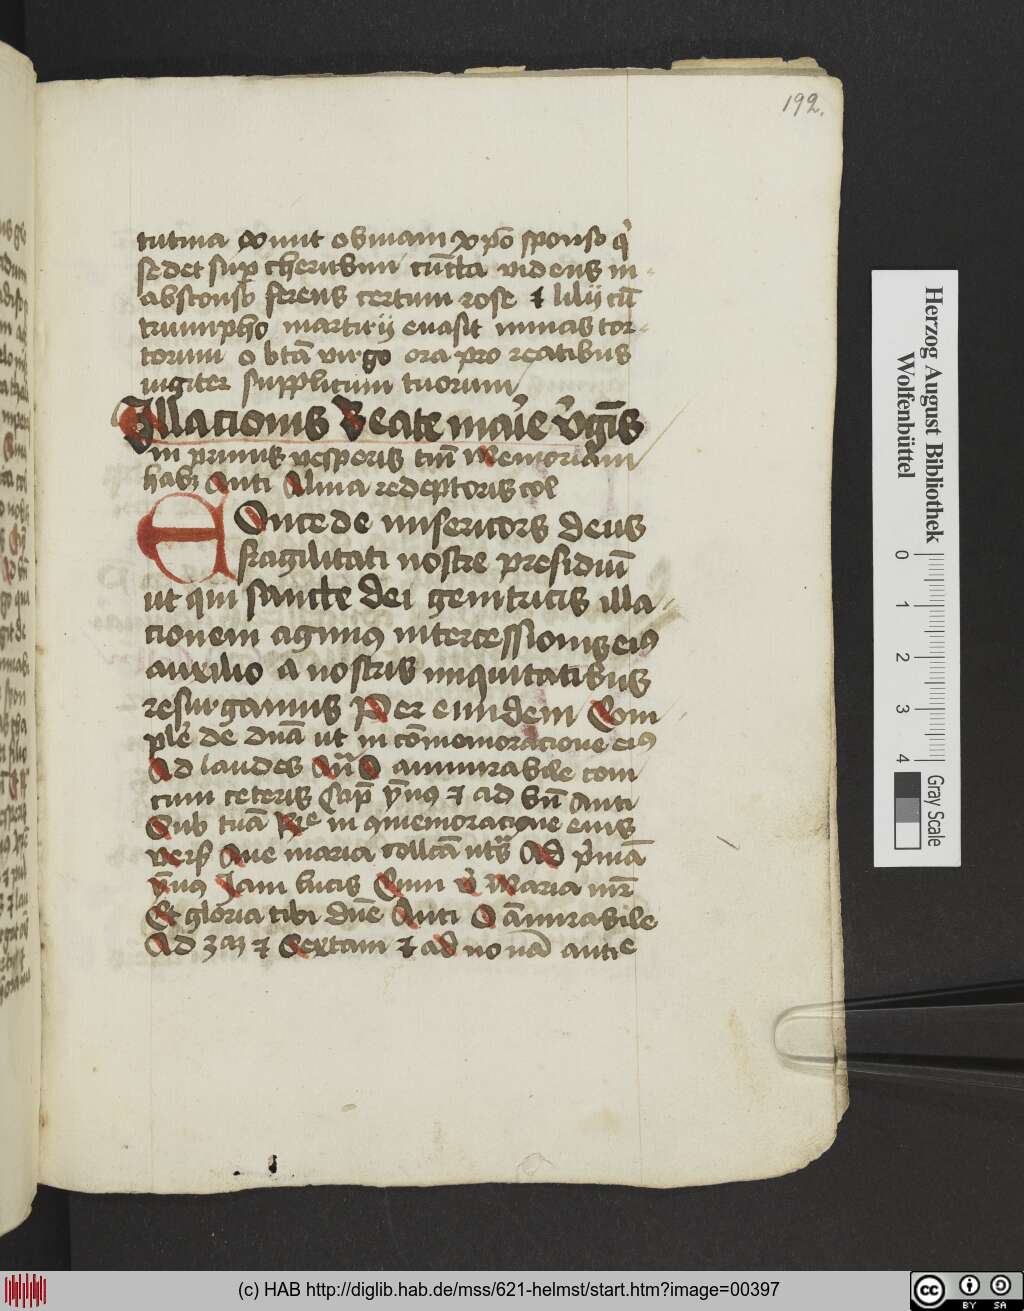 192.
tutina exiuit obuiam xpō sponso q̇
sedet sup cherubim cūcta videns in
absconso ferens certum rose ⁊ lilij cū
triumpho martirij euasit minas tor-
torum o btā virgo ora pro reatibus
iugiter supplicum tuorum
Illacionis Beate marie v̄gīs
in primis vesperis tm̄ memoriam
habꝫ Anti Alma redeptoris col
Concede misericors deus
fragilitati nostre presidiū
ut qui sancte dei genitricis illa
cionem agimꝯ intercessionis eiꝯ
auxilio a nostris iniquitatibus
resurgamus Per eundem Com
ple de dn̄a ut in cōmemoracione eiꝯ
Ad laudes Añ O ammirabile com
cum ceteris Cap̄ ym̄nꝯ ⁊ ad bn̄ Anti
Sub tuā in ꝯmemoracione eius
vers Aue maria collcā ut Ad p̄mā
ym̄nꝯ Jam lucis Cum Maria
Et gloria tibi dn̄e Anti O āmirabile
Ad 3am ⁊ Sextam ⁊ ad nonā antie
Herzog August Bibliothek
Wolfenbüttel
0 1 2 3 4
Gray Scale
(c) HAB http://diglib.hab.de/mss/621-helmst/start.htm?image=00397
cc BY SA